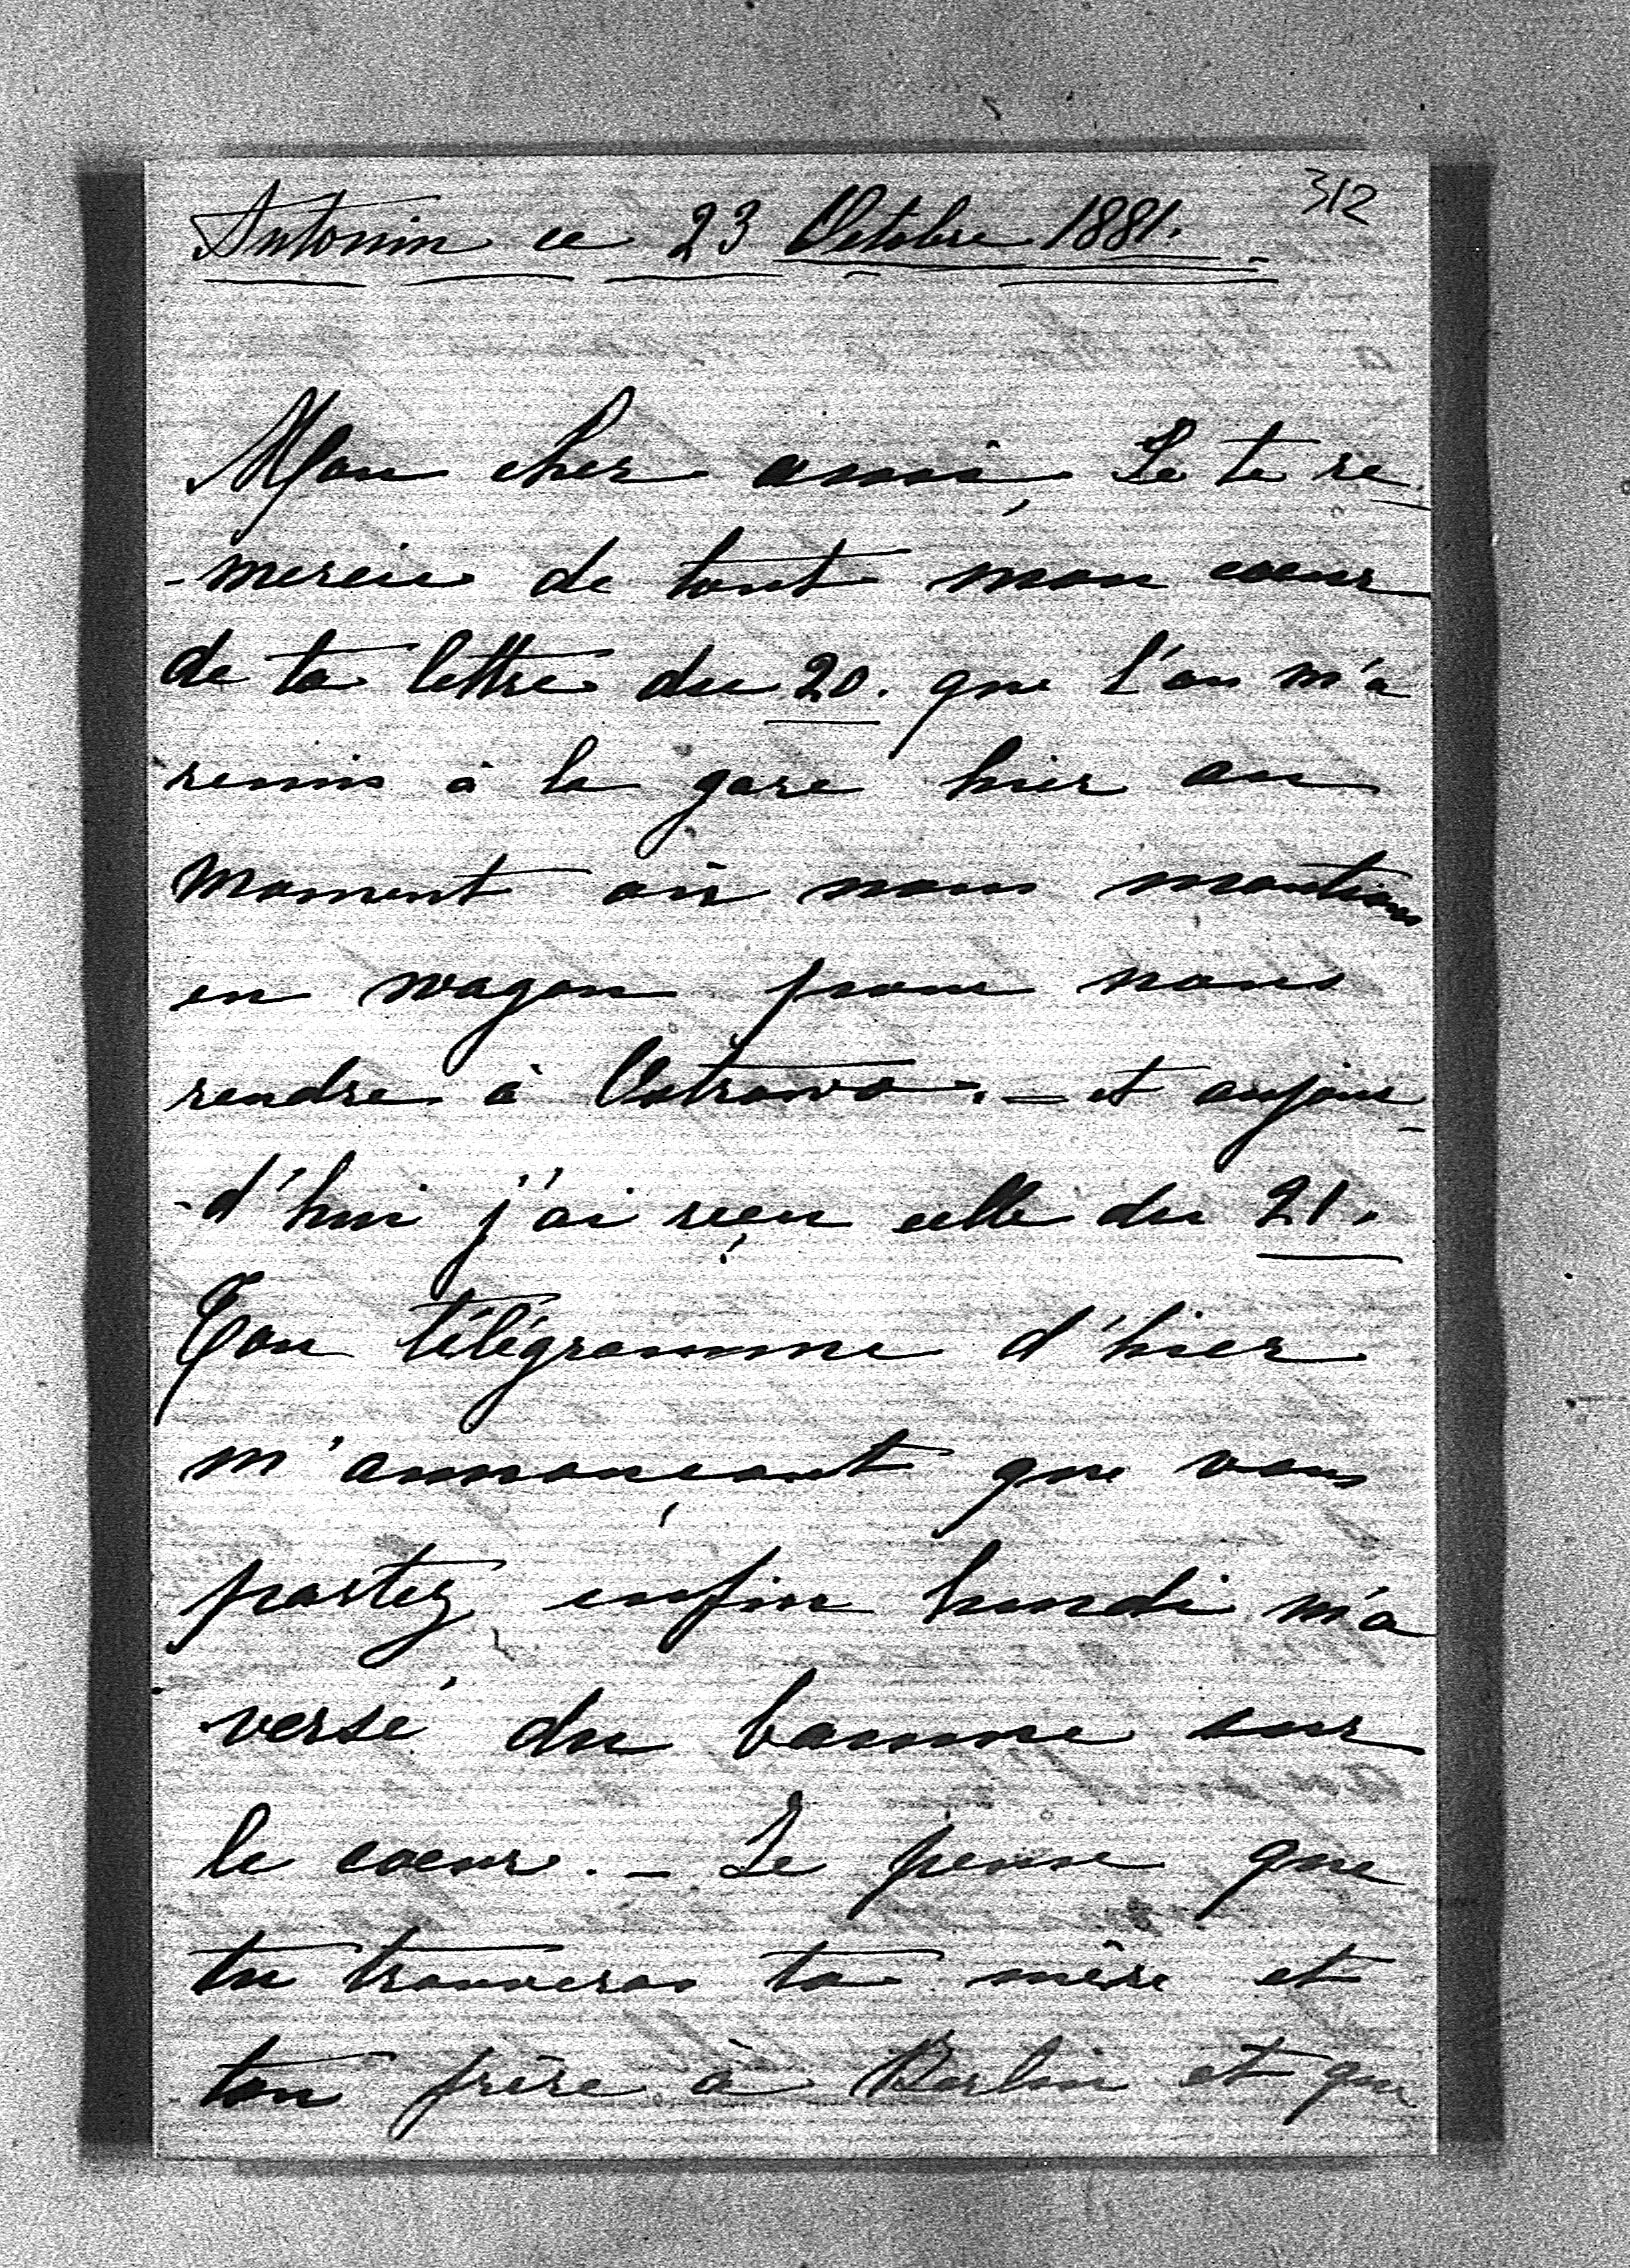 312
Antonin ce 23 Octobre 1881.
Mon cher ami, Je te re-
-mercie de tout mon coeur
de ta lettre du 20. que l'on m'a
remis à la gare hier au
moment où nous montions
en wagon pour nous
rendre à Ostrowo. - et aujour-
-d'hui j'ai reçu celle du 21.
Ton télégramme d'hier
m'annonçant que vous
partez enfin lundi m'a
versé du baume sur
le coeur. - Je pense que
tu trouveras ta mère et
ton frère à Berlin et que